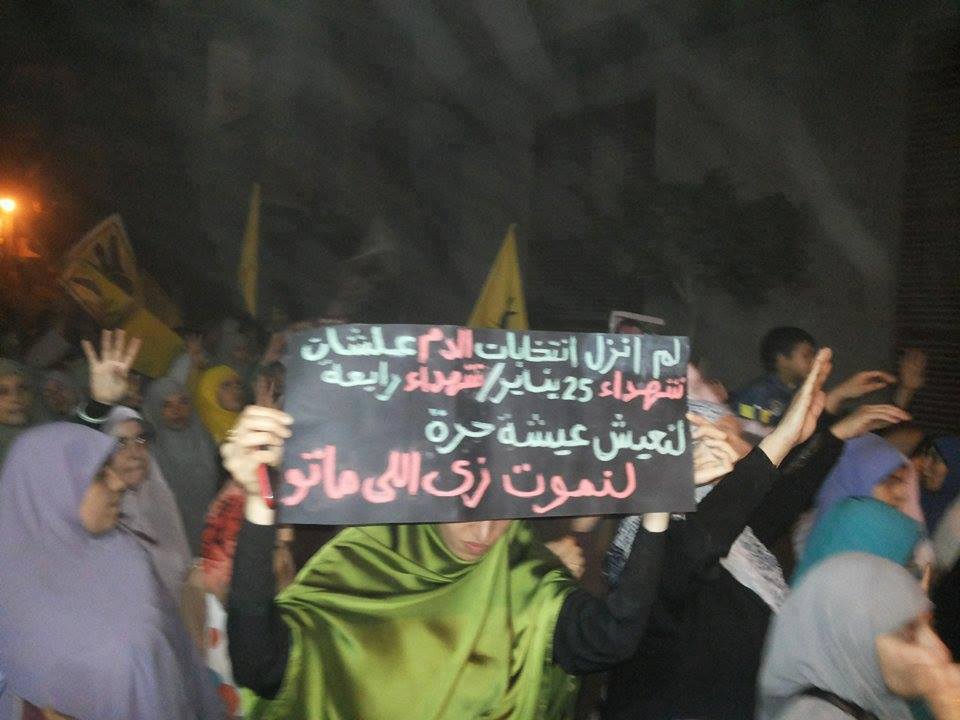 لم انزل انتخابات الدم علشان
شهداء 25 يناير/شهداء رابعة
لنعيش عيشة حرة
لنموت زى اللى ماتو